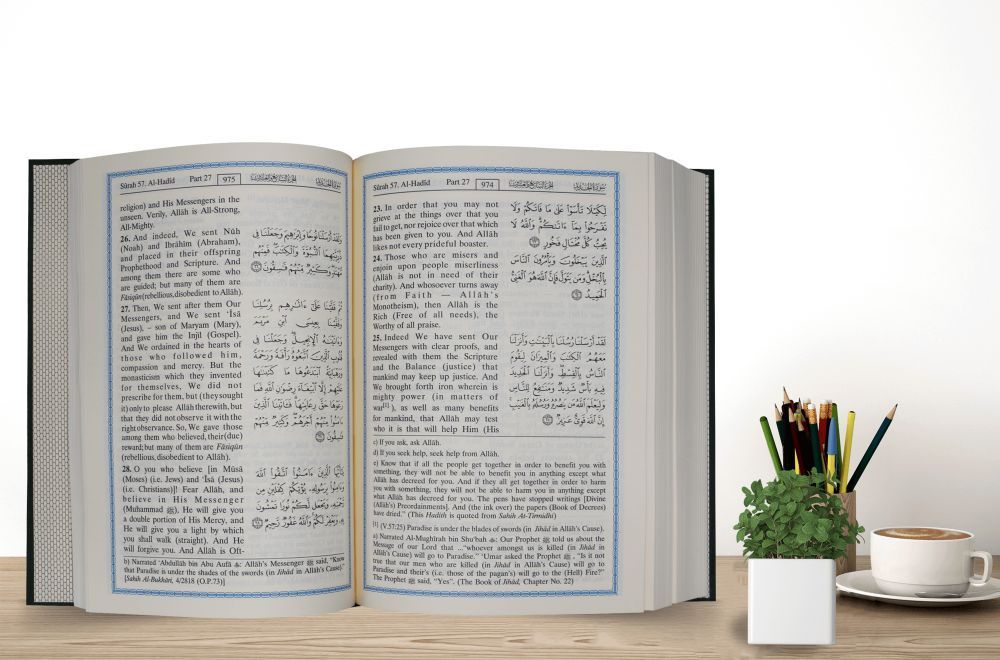 Sûrah 57. Al-Hadîd Part 27 974 الجزء السابع والعشرون سورة الحديد
23. In order that you may not
grieve at the things over that you
fail to get, nor rejoice over that which
has been given to you. And Allâh
likes not every prideful boaster.
24. Those who are misers and
enjoin upon people miserliness
(Allâh is not in need of their
charity). And whosoever turns away
(from Faith — Allâh's
Monotheism), then Allâh is the
Rich (Free of all needs), the
Worthy of all praise.
25. Indeed We have sent Our
Messengers with clear proofs, and
revealed with them the Scripture
and the Balance (justice) that
mankind may keep up justice. And
We brought forth iron wherein is
mighty power (in matters of
war[1]), as well as many benefits
for mankind, that Allâh may test
who it is that will help Him (His
لِّكَيْلَا تَأْسَوْا۟ عَلَىٰ مَا فَاتَكُمْ وَلَا
تَفْرَحُوا۟ بِمَآ ءَاتَىٰكُمْ وَٱللَّهُ لَا
يُحِبُّ كُلَّ مُخْتَالٍ فَخُورٍ ٢٣
ٱلَّذِينَ يَبْخَلُونَ وَيَأْمُرُونَ ٱلنَّاسَ
بِٱلْبُخْلِ وَمَن يَتَوَلَّ فَإِنَّ ٱللَّهَ هُوَ ٱلْغَنِىُّ
ٱلْحَمِيدُ ٢٤
لَقَدْ أَرْسَلْنَا رُسُلَنَا بِٱلْبَيِّنَٰتِ وَأَنزَلْنَا
مَعَهُمُ ٱلْكِتَٰبَ وَٱلْمِيزَانَ لِيَقُومَ
ٱلنَّاسُ بِٱلْقِسْطِ وَأَنزَلْنَا ٱلْحَدِيدَ
فِيهِ بَأْسٌ شَدِيدٌ وَمَنَٰفِعُ لِلنَّاسِ
وَلِيَعْلَمَ ٱللَّهُ مَن يَنصُرُهُۥ وَرُسُلَهُۥ بِٱلْغَيْبِ
إِنَّ ٱللَّهَ قَوِىٌّ عَزِيزٌ ٢٥
c) If you ask, ask Allâh.
d) If you seek help, seek help from Allâh.
e) Know that if all the people get together in order to benefit you with
something, they will not be able to benefit you in anything except what
Allâh has decreed for you. And if they all get together in order to harm
you with something, they will not be able to harm you in anything except
what Allâh has decreed for you. The pens have stopped writings [Divine
(Allâh's) Preordainments]. And (the ink over) the papers (Book of Decrees)
have dried." (This Hadith is quoted from Sahih At-Tirmidhi)
[1] (V.57:25) Paradise is under the blades of swords (in Jihâd in Allâh's Cause).
a) Narrated Al-Mughîrah bin Shu'bah: Our Prophet ﷺ told us about the
Message of our Lord that ..."whoever amongst us is killed (in Jihâd in
Allâh's Cause) will go to Paradise." 'Umar asked the Prophet ﷺ, "Is it not
true that our men who are killed (in Jihâd in Allâh's Cause) will go to
Paradise and their's (i.e. those of the pagan's) will go to the (Hell) Fire?"
The Prophet ﷺ said, "Yes". (The Book of Jihâd, Chapter No. 22)
Sûrah 57. Al-Hadîd Part 27 975 الجزء السابع والعشرون سورة الحديد
religion) and His Messengers in the
unseen. Verily, Allâh is All-Strong,
All-Mighty.
26. And indeed, We sent Nûh
(Noah) and Ibrâhîm (Abraham),
and placed in their offspring
Prophethood and Scripture. And
among them there are some who
are guided; but many of them are
Fâsiqûn (rebellious, disobedient to Allâh).
27. Then, We sent after them Our
Messengers, and We sent 'Îsâ
(Jesus), – son of Maryam (Mary),
and gave him the Injîl (Gospel).
And We ordained in the hearts of
those who followed him,
compassion and mercy. But the
monasticism which they invented
for themselves, We did not
prescribe for them, but (they sought
it) only to please Allâh therewith, but
that they did not observe it with the
right observance. So, We gave those
among them who believed, their (due)
reward; but many of them are Fâsiqûn
(rebellious, disobedient to Allâh).
28. O you who believe [in Mûsâ
(Moses) (i.e. Jews) and 'Îsâ (Jesus)
(i.e. Christians)]! Fear Allâh, and
believe in His Messenger
(Muhammad ﷺ), He will give you
a double portion of His Mercy, and
He will give you a light by which
you shall walk (straight). And He
will forgive you. And Allâh is Oft-
وَلَقَدْ أَرْسَلْنَا نُوحًا وَإِبْرَٰهِيمَ وَجَعَلْنَا فِى
ذُرِّيَّتِهِمَا ٱلنُّبُوَّةَ وَٱلْكِتَٰبَ فَمِنْهُم
مُّهْتَدٍ وَكَثِيرٌ مِّنْهُمْ فَٰسِقُونَ ٢٦
ثُمَّ قَفَّيْنَا عَلَىٰٓ ءَاثَٰرِهِم بِرُسُلِنَا
وَقَفَّيْنَا بِعِيسَى ٱبْنِ مَرْيَمَ
وَءَاتَيْنَٰهُ ٱلْإِنجِيلَ وَجَعَلْنَا فِى
قُلُوبِ ٱلَّذِينَ ٱتَّبَعُوهُ رَأْفَةً وَرَحْمَةً
وَرَهْبَانِيَّةً ٱبْتَدَعُوهَا مَا كَتَبْنَٰهَا
عَلَيْهِمْ إِلَّا ٱبْتِغَآءَ رِضْوَٰنِ ٱللَّهِ فَمَا
رَعَوْهَا حَقَّ رِعَايَتِهَا فَـَٔاتَيْنَا ٱلَّذِينَ
ءَامَنُوا۟ مِنْهُمْ أَجْرَهُمْ وَكَثِيرٌ مِّنْهُمْ
فَٰسِقُونَ ٢٧
يَٰٓأَيُّهَا ٱلَّذِينَ ءَامَنُوا۟ ٱتَّقُوا۟ ٱللَّهَ
وَءَامِنُوا۟ بِرَسُولِهِۦ يُؤْتِكُمْ كِفْلَيْنِ مِن
رَّحْمَتِهِۦ وَيَجْعَل لَّكُمْ نُورًا تَمْشُونَ
بِهِۦ وَيَغْفِرْ لَكُمْ وَٱللَّهُ غَفُورٌ رَّحِيمٌ ٢٨
b) Narrated 'Abdullâh bin Abu Aufâ: Allâh's Messenger ﷺ said, "Know
that Paradise is under the shades of the swords (in Jihâd in Allâh's Cause)."
[Sahih Al-Bukhâri, 4/2818 (O.P.73)]